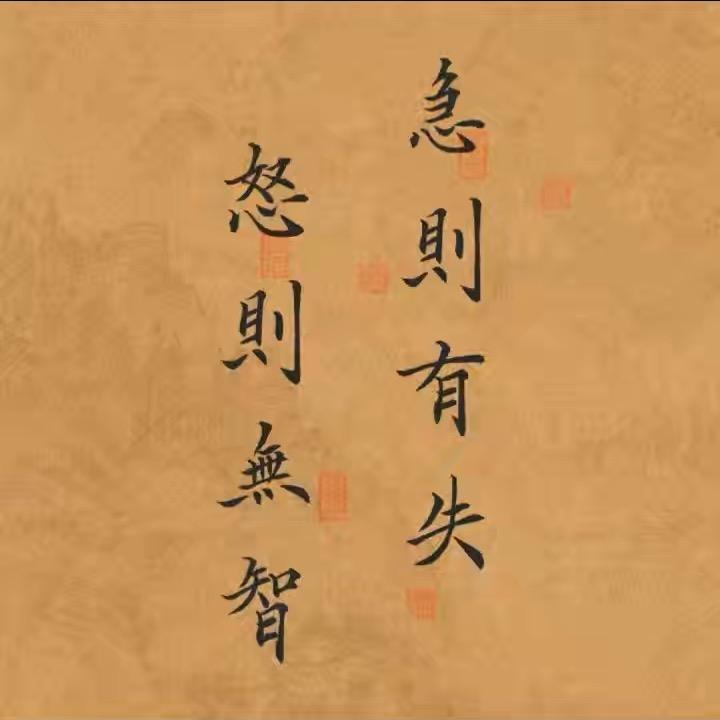 急則有失
怒則無智